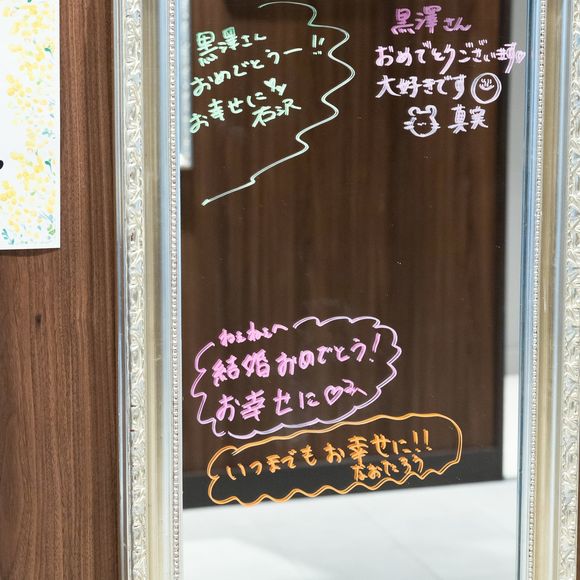 黒澤さん
おめでとうー!!
お幸せに
石沢
黒澤さん
おめでとうございます
大好きです
真実
ねぇねぇへ
結婚おめでとう!
お幸せに♡
いつまでもお幸せに!!
なおたろう